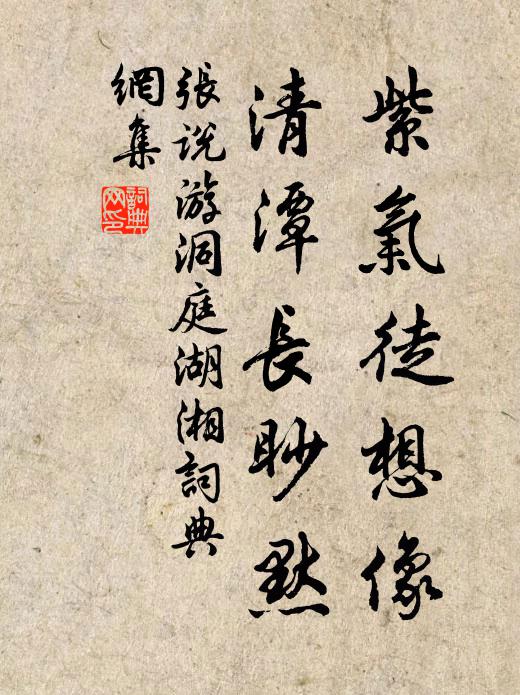 紫氣徒想像
清潭長眇默
張說游洞庭湖湘詞典
網集
詞典網印